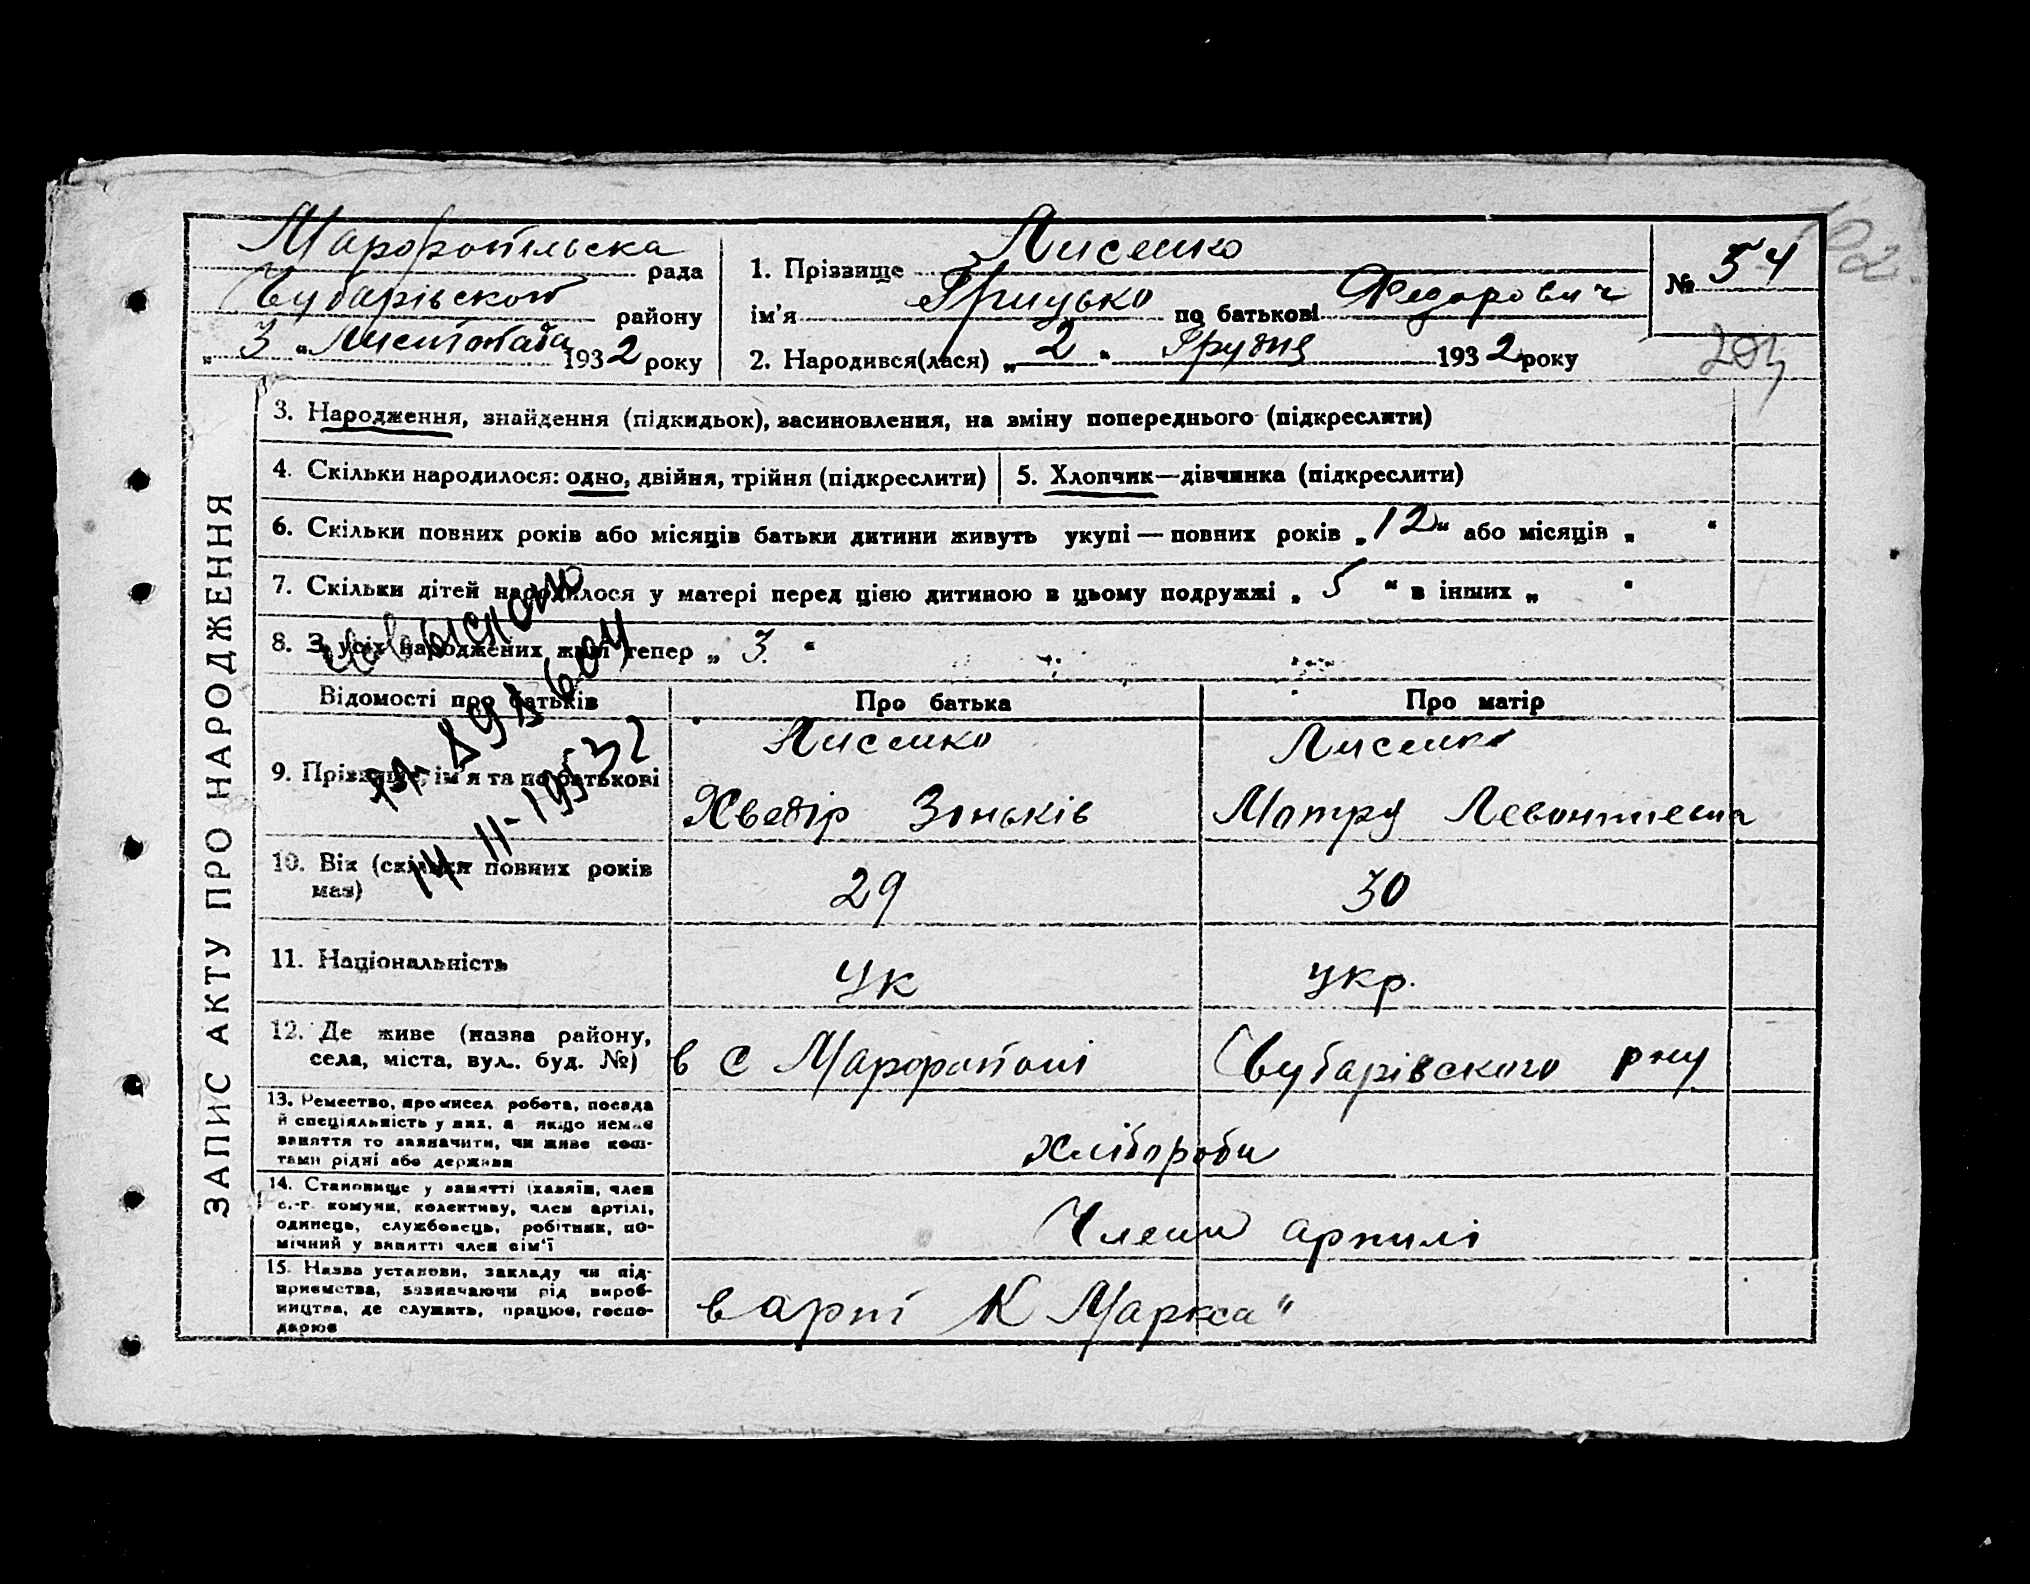 Марфопільська рада
Чубарівського району
„ 3 " Листопада 1932 року
1. Прізвище Лисенко
ім'я Грицько по батькові Федорович
№ 54
2. Народився(лася) „ 2 " Грудня 1932 року
ЗАПИС АКТУ ПРО НАРОДЖЕННЯ
3. Народження, знайдення (підкидьок), засиновлення, на зміну попереднього (підкреслити)
4. Скільки народилося: одно, двійня, трійня (підкреслити)
5. Хлопчик—дівчинка (підкреслити)
6. Скільки повних років або місяців батьки дитини живуть укупі — повних років „ 12 " або місяців „ "
7. Скільки дітей народилося у матері перед цією дитиною в цьому подружжі „ 5 " в інших „ "
8. З усіх народжених живі тепер „ 3. "
Відомості про батьків
Про батька
Про матір
9. Прізвище, ім'я та по батькові
Лисенко
Хведір Зіньків
Лисенко
Мотря
10. Вік (скільки повних років має)
29
30
11. Національність
Ук
укр.
12. Де живе (назва району,
села, міста, вул., буд. №)
в с Марфополі
Чубарівського рну
13. Ремество, промисел робота, посада
й спеціяльність у них, а якщо немає
заняття то зазначити, чи живе кош-
тами рідні або держави
Хлібороби
14. Становище у занятті (хазяїн, член
с.-г. комуни, колективу, член артілі,
одинець, службовець, робітник, по-
мічний у занятті член сім'ї
Члени артилі
15. Назва установи, закладу чи під-
приємства, зазначаючи рід вироб-
ництва, де служить, працює, госпо-
дарює
в арті К Маркса"